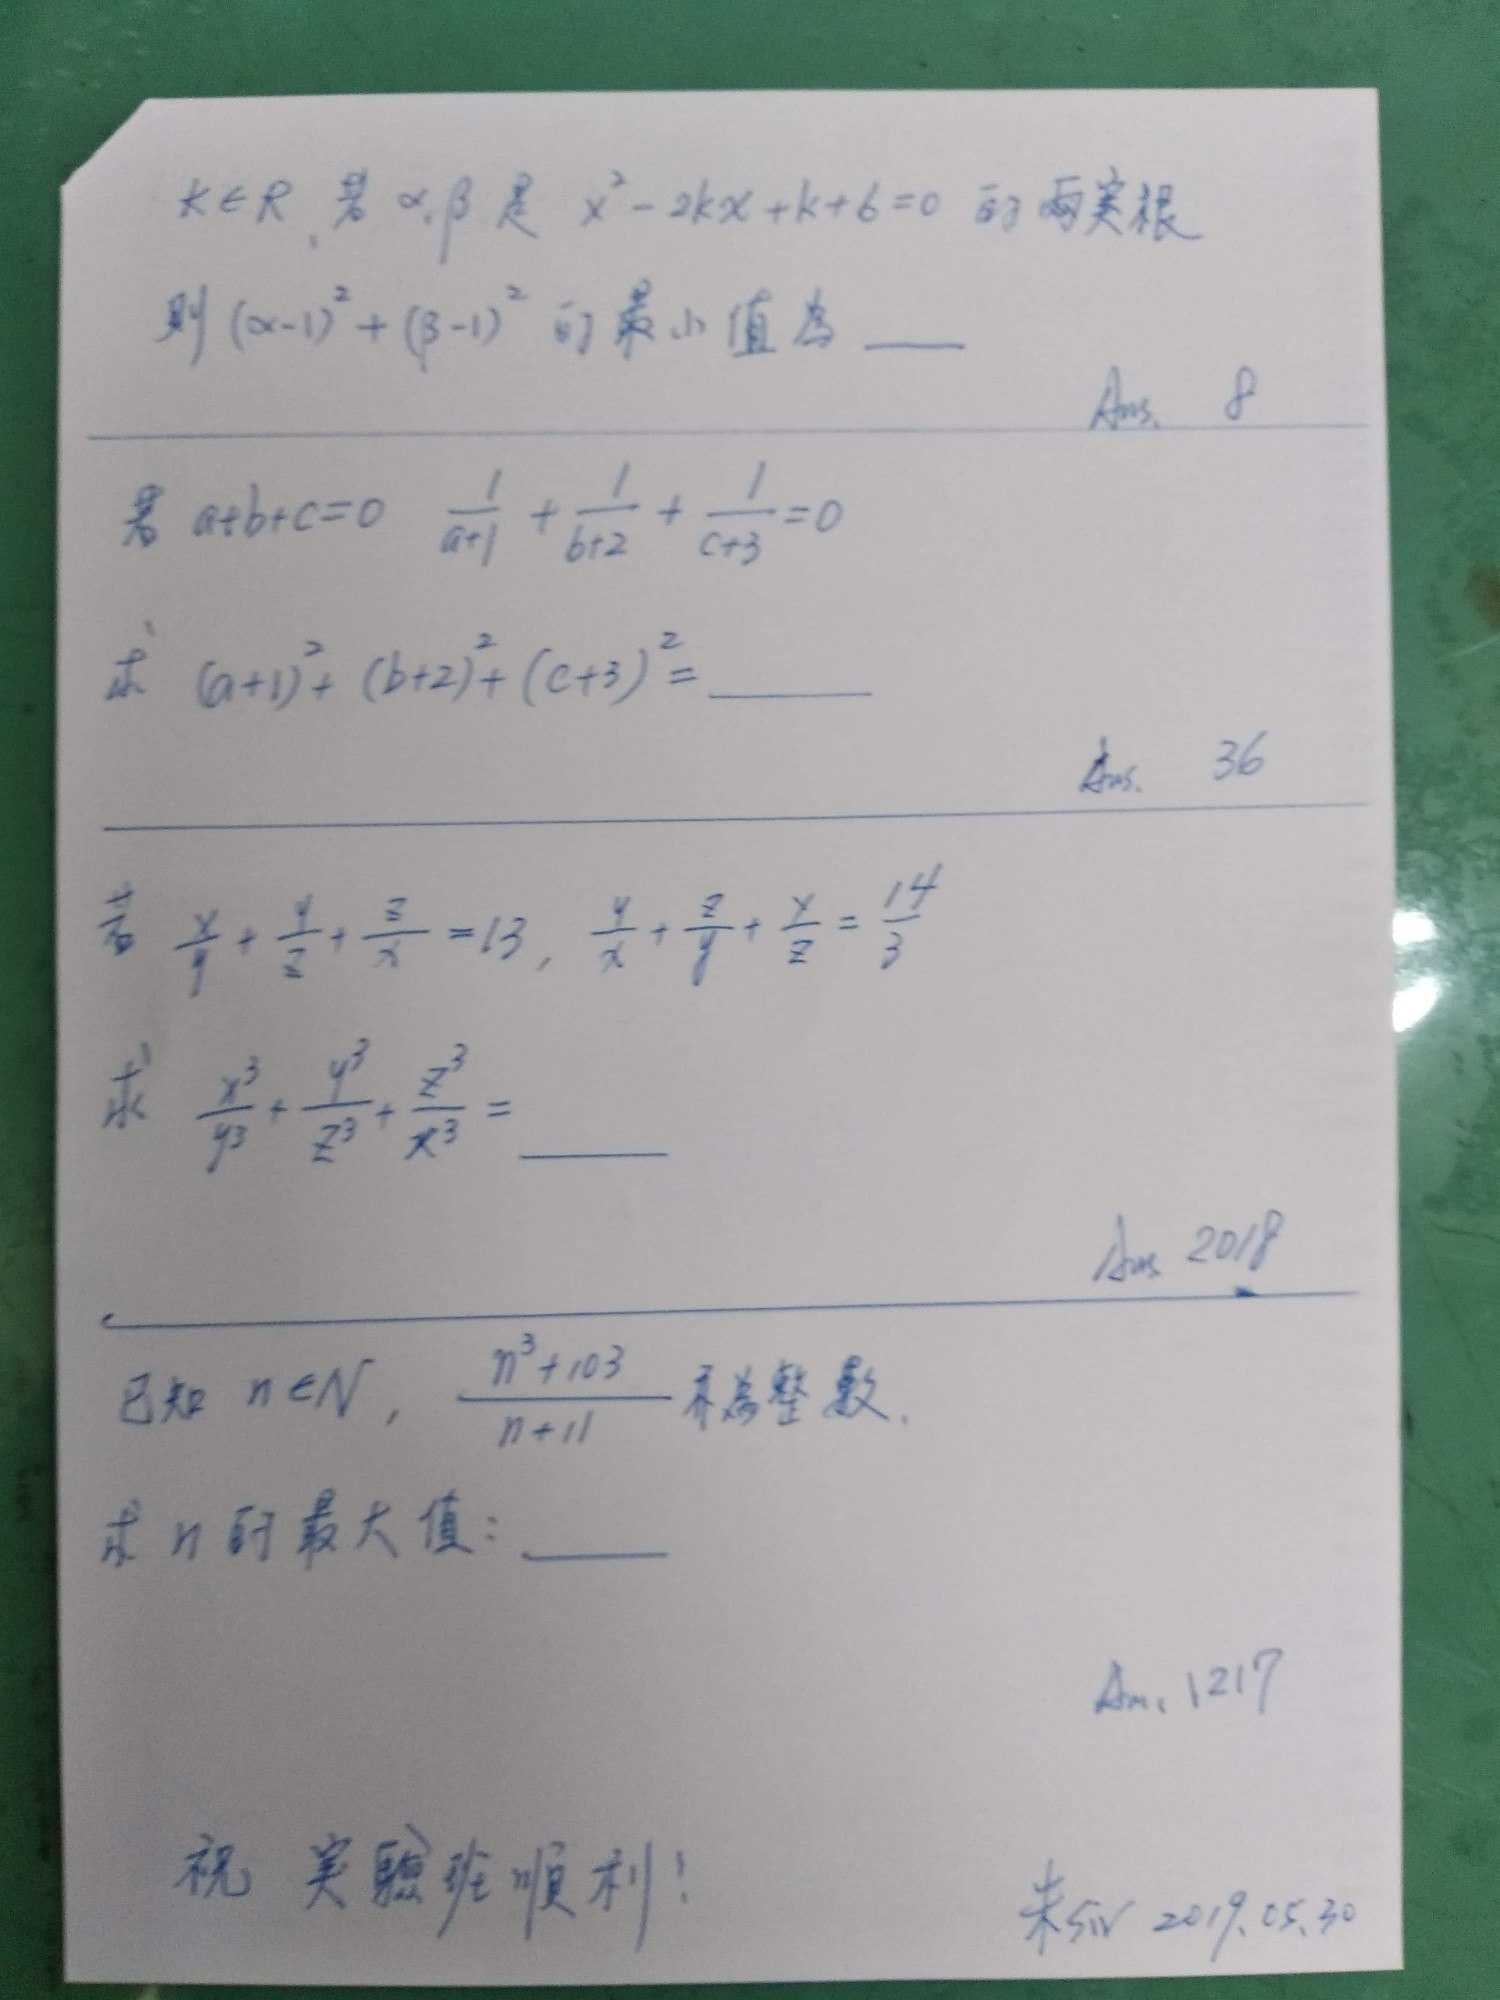 k∈R, 若 α, β 是 x²-2kx+k+6=0 的兩実根
則 (α-1)²+(β-1)² 的最小值為 ____
Ans. 8
若 a+b+c=0 1/(a+1) + 1/(b+2) + 1/(c+3) =0
求 (a+1)²+(b+2)²+(c+3)²= ____
Ans. 36
若 x/y + y/z + z/x =13, y/x + z/y + x/z = 14/3
求 x³/y³ + y³/z³ + z³/x³ = ____
Ans 2018
已知 n∈N, (n³+103)/(n+11) 亦為整數,
求 n 的最大值: ____
An. 1217
祝 実驗班順利!
朱 2019.05.30